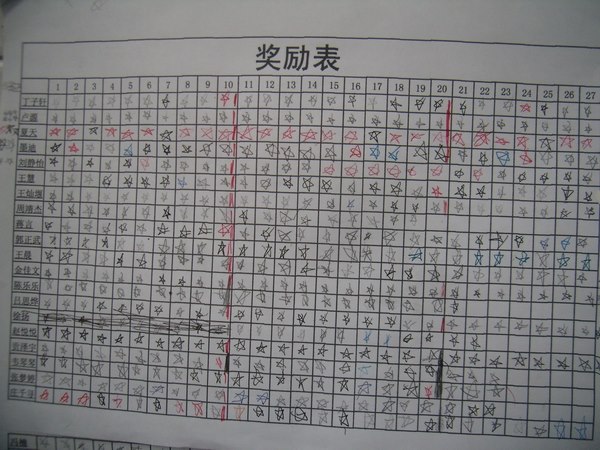 奖励表
1 2 3 4 5 6 7 8 9 10 11 12 13 14 15 16 17 18 19 20 21 22 23 24 25 26 27
丁子轩
卢露
夏天
墨迪
刘静怡
王慧
王灿煜
周靖杰
蒋言
郭正武
王晨
金佳文
陈乐乐
吕思烨
徐扬
赵悦悦
韦琴琴
张梦婷
庄子寻